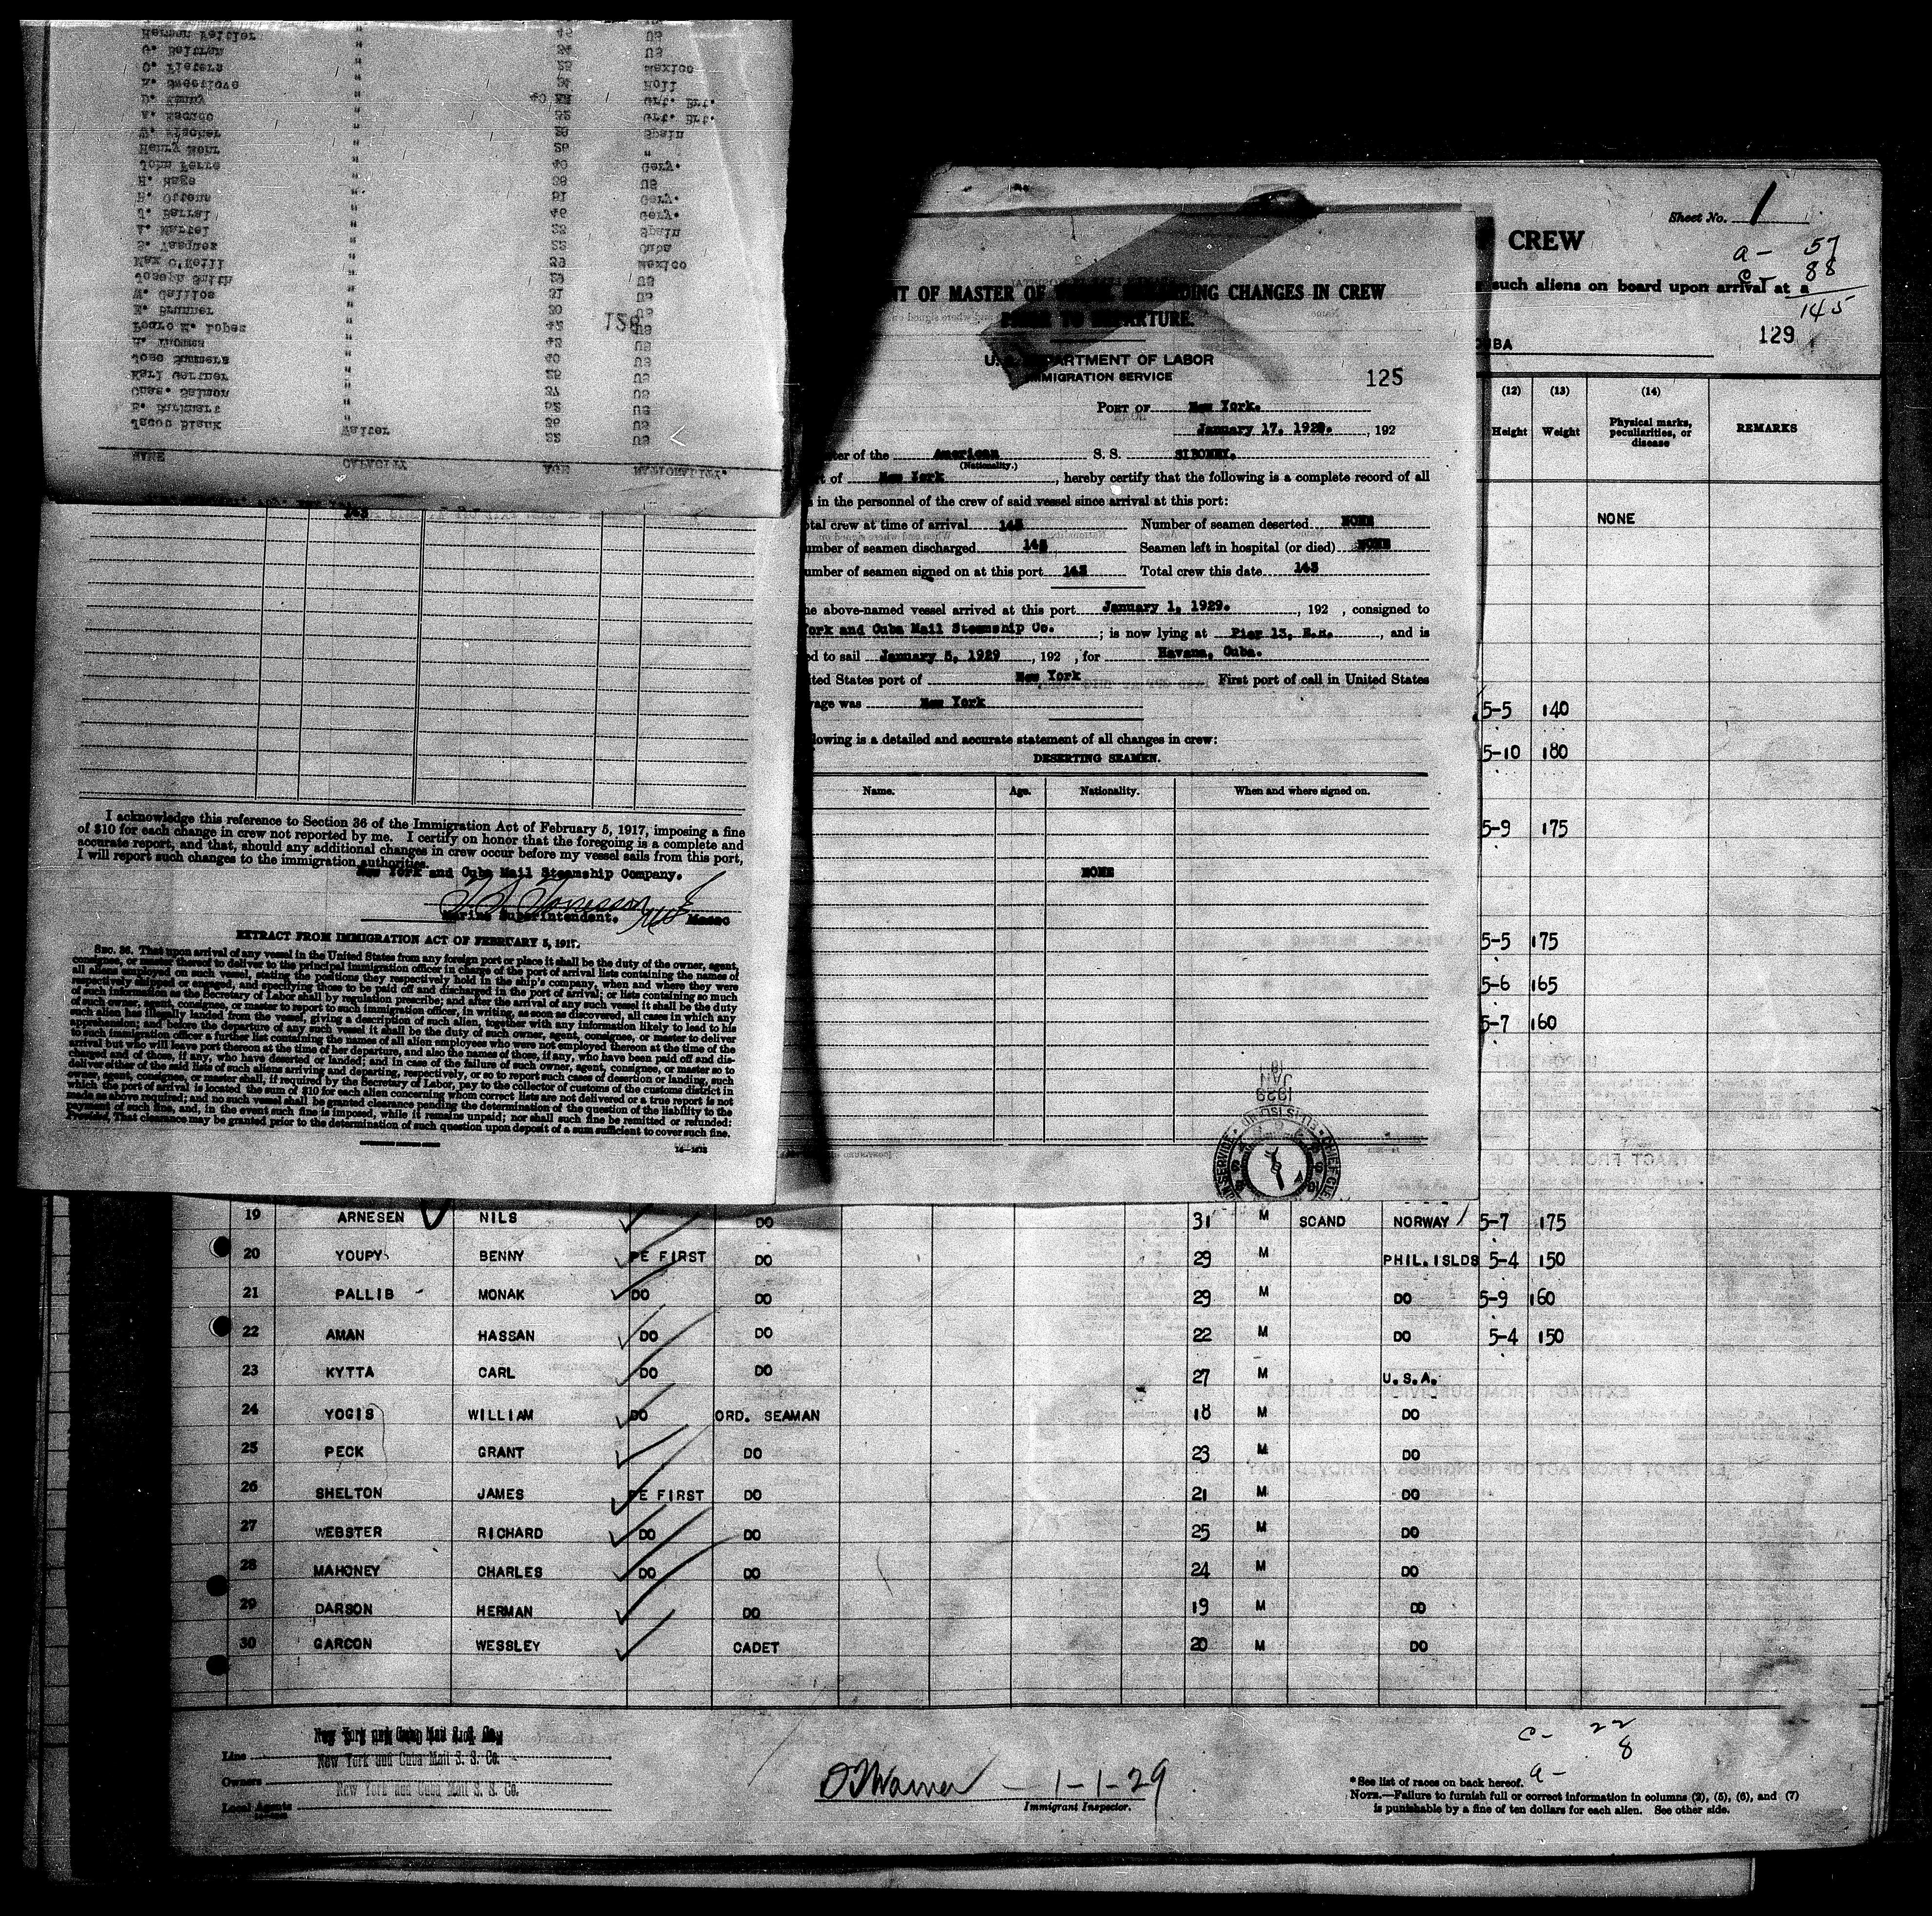 NAME CAPACITY AGE NATIONALITY.
Jacob Blank Waiter 36 US
" 52 US
Chas. Salmon " 37 US
Karl Gertner " 25 US
Jose Summers " 40 US
" 42 US
Pedro E. Lopes " 42 US
E. Brunner " 30 US
" 31 US
Joseph Smith " 29 US
Max C. Neill " 39 Mexico
S. Vasquez " 23 Cuba
" 23 Spain
" 46 Gery.
H. Ottens " 51 Gery.
H. Hage " 38 US
John Ferre " 40 Gery.
Henry Mohr " 26 "
W. Fischer " 29 Spain
" 32 Grt. Brt.
D. Kenny " 40 Grt. Brt.
" 34 Holl
" 25 Mexico
G. Beltran " 34 US
" 45 US
143
I acknowledge this reference to Section 36 of the Immigration Act of February 5, 1917, imposing a fine
of $10 for each change in crew not reported by me. I certify on honor that the foregoing is a complete and
accurate report, and that, should any additional changes in crew occur before my vessel sails from this port,
I will report such changes to the immigration authorities.
New York and Cuba Mail Steamship Company.
Marine Superintendent.
EXTRACT FROM IMMIGRATION ACT OF FEBRUARY 5, 1917.
SEC. 36. That upon arrival of any vessel in the United States from any foreign port or place it shall be the duty of the owner, agent,
consignee, or master thereof to deliver to the principal immigration officer in charge of the port of arrival lists containing the names of
all aliens employed on such vessel, stating the positions they respectively hold in the ship's company, when and where they were
respectively shipped or engaged, and specifying those to be paid off and discharged in the port of arrival; or lists containing so much
of such information as the Secretary of Labor shall by regulation prescribe; and after the arrival of any such vessel it shall be the duty
of such owner, agent, consignee, or master to report to such immigration officer, in writing, as soon as discovered, all cases in which any
such alien has illegally landed from the vessel, giving a description of such alien, together with any information likely to lead to his
apprehension; and before the departure of any such vessel it shall be the duty of such owner, agent, consignee, or master to deliver
to such immigration officer a further list containing the names of all alien employees who were not employed thereon at the time of the
arrival but who will leave port thereon at the time of her departure, and also the names of those, if any, who have been paid off and dis-
charged and of those, if any, who have deserted or landed; and in case of the failure of such owner, agent, consignee, or master so to
deliver either of the said lists of such aliens arriving and departing, respectively, or so to report such cases of desertion or landing, such
owner, agent, consignee, or master shall, if required by the Secretary of Labor, pay to the collector of customs of the customs district in
which the port of arrival is located the sum of $10 for each alien concerning whom correct lists are not delivered or a true report is not
made as above required; and no such vessel shall be granted clearance pending the determination of the question of the liability to the
payment of such fine, and, in the event such fine is imposed, while it remains unpaid; nor shall such fine be remitted or refunded:
Provided, That clearance may be granted prior to the determination of such question upon deposit of a sum sufficient to cover such fine.
NT OF MASTER OF CHANGES IN CREW
PRIOR TO DEPARTURE.
U. S. DEPARTMENT OF LABOR
IMMIGRATION SERVICE
125
PORT OF New York.
January 17, 1929. , 192
ter of the American S. S. SIBONEY.
(Nationality.)
rt of New York , hereby certify that the following is a complete record of all
in the personnel of the crew of said vessel since arrival at this port:
tal crew at time of arrival 143 Number of seamen deserted NONE
umber of seamen discharged 143 Seamen left in hospital (or died) NONE
umber of seamen signed on at this port 143 Total crew this date 143
he above-named vessel arrived at this port January 1, 1929. , 192 , consigned to
ork and Cuba Mail Steamship Co. ; is now lying at Pier 13, E.R. , and is
ed to sail January 5, 1929 , 192 , for Havana, Cuba.
ited States port of New York First port of call in United States
yage was New York
lowing is a detailed and accurate statement of all changes in crew:
DESERTING SEAMEN.
Name. Age. Nationality. When and where signed on.
NONE
Sheet No. 1
CREW
a - 57
c - 88
145
such aliens on board upon arrival at a
UBA
129
(12) (13) (14)
Height Weight Physical marks, peculiarities, or disease REMARKS
NONE
5-5 140
5-10 180
5-9 175
5-5 175
5-6 165
5-7 160
19 ARNESEN NILS DO 31 M SCAND NORWAY 5-7 175
20 YOUPY BENNY PE FIRST DO 29 M PHIL.ISLDS 5-4 150
21 PALLIB MONAK DO DO 29 M DO 5-9 160
22 AMAN HASSAN DO DO 22 M DO 5-4 150
23 KYTTA CARL DO DO 27 M U.S.A.
24 YOGIS WILLIAM DO ORD. SEAMAN 18 M DO
25 PECK GRANT DO 23 M DO
26 SHELTON JAMES PE FIRST DO 21 M DO
27 WEBSTER RICHARD DO DO 25 M DO
28 MAHONEY CHARLES DO DO 24 M DO
29 DARSON HERMAN DO 19 M DO
30 GARCON WESSLEY CADET 20 M DO
Line New York and Cuba Mail S. S. Co.
Owners New York and Cuba Mail S. S. Co.
Local Agents New York and Cuba Mail S. S. Co.
1-1-29
Immigrant Inspector.
c- 22
8
a-
*See list of races on back hereof.
NOTE.—Failure to furnish full or correct information in columns (2), (5), (6), and (7)
is punishable by a fine of ten dollars for each alien. See other side.